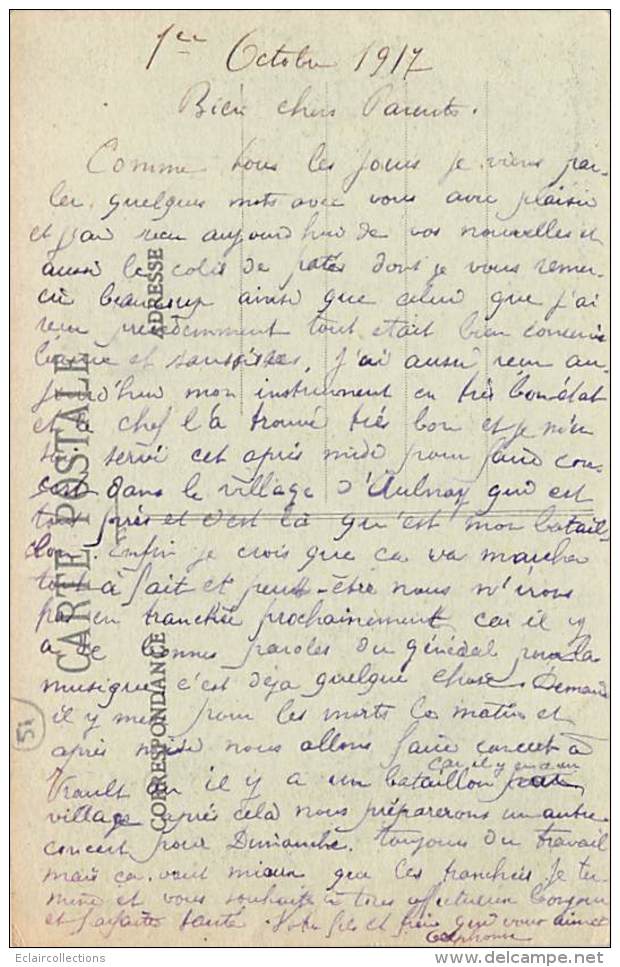 1er Octobre 1917
Bien chers Parents.
Comme tous les jours je viens par-
ler quelques mots avec vous avec plaisir
et j'ai reçu aujourd'hui de vos nouvelles et
aussi le colis de patés dont je vous remer-
cie beaucoup ainsi que celui que j'ai
reçu précédemment tout était bien conservé
et saucisses, j'ai aussi reçu au-
jourd'hui mon instrument en très bon état
et le chef l'a trouvé très bon et je m'en
suis servi cet après midi pour faire con-
cert dans le village d'Aulnay qui est
tout près et c'est là qu'est mon batail-
lon. Enfin je crois que ça va marcher
tout à fait et peut-être nous n'irons
pas en tranchée prochainement car il y
a de bonnes paroles du général pour la
musique c'est déja quelque chose. Demain
il y a messe pour les morts le matin et
après midi nous allons faire concert à
car il y en a un
Vrault où il y a un bataillon
village après celà nous préparerons un autre
concert pour Dimanche. toujours du travail
mais ça vaut mieux que les tranchées je ter-
mine et vous souhaite à tous affectueux bonjour
et parfaite santé. Votre fils et frère qui vous aime
Alphonse
CARTE POSTALE
CORRESPONDANCE
ADRESSE
51
Eclaircollections
www.delcampe.net